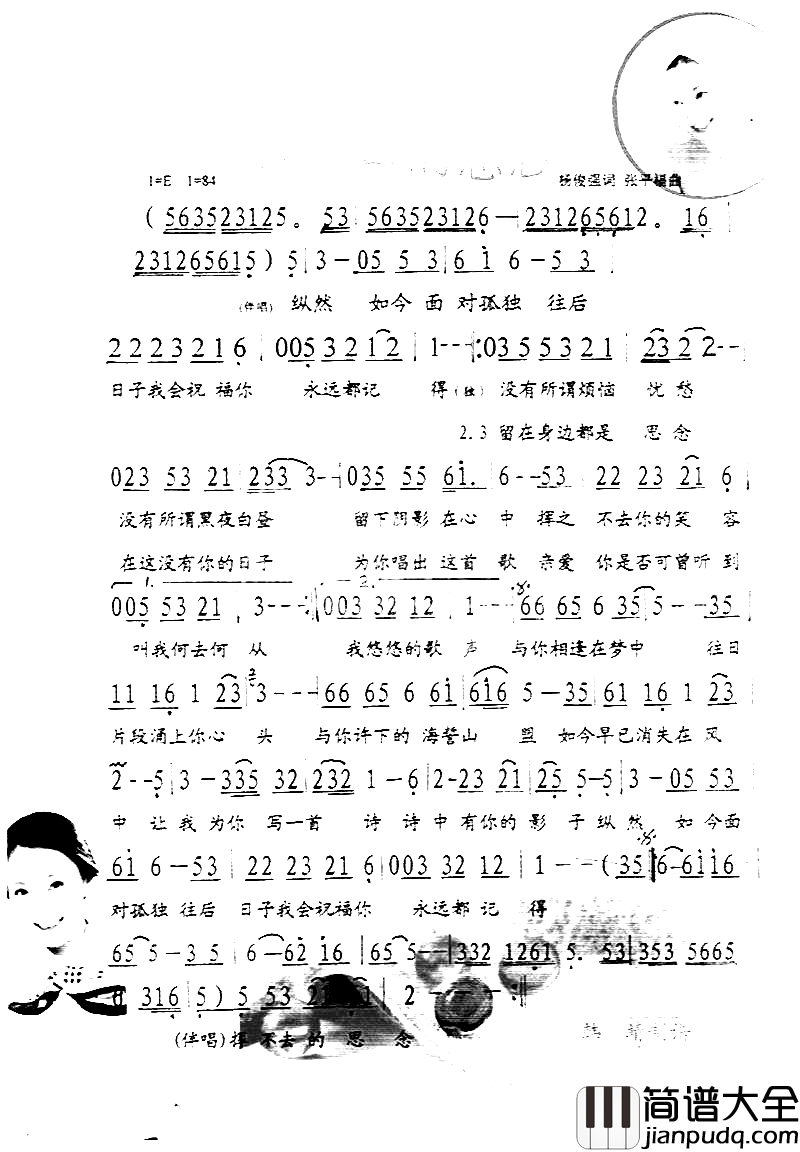 1=E 1=84 杨俊强词 张平福曲
(563523125。 53 563523126—231265612。 16
231265615) 5 3-05 5 3 6 1 6-5 3
(伴唱) 纵然 如今面对孤独 往后
2 2 2 3 2 1 6 005 3 2 1 2 1--:03 5 5 3 2 1 23 2 2--
日子我会祝福你 永远都记 得(独) 没有所谓烦恼 忧愁
2.3 留在身边都是 思念
023 53 21 233 3-- 035 55 61. 6--53 22 23 21 6
没有所谓黑夜白昼 留下阴影在心中 挥之 不去你的笑 容
在这没有你的日子 为你唱出这首 歌 亲爱 你是否可曾听到
1.
005 53 21 3--- 003 32 12 1--- 66 65 6 35 5--35
叫我何去何 从 我悠悠的歌 声 与你相逢在梦中 往日
11 16 1 23 3--- 66 65 6 61 616 5-35 61 16 1 23
片段涌上你心 头 与你许下的 海誓山 盟 如今早已消失在风
2--5 3-335 32 232 1-6 2-23 21 25 5-5 3-05 53
中 让我 为你 写一首 诗 诗中有你的影 子纵然 如今面
61 6-53 22 23 21 6 003 32 12 1---(35 6-6116
对孤独 往后 日子我会祝福你 永远都 记 得
65 5-3 5 6-62 16 65 5-- 332 1261 5. 53 353 5665
316 5) 5 53 2 2--:
(伴唱)挥不去的思 念
简谱大全
jianpudq.com